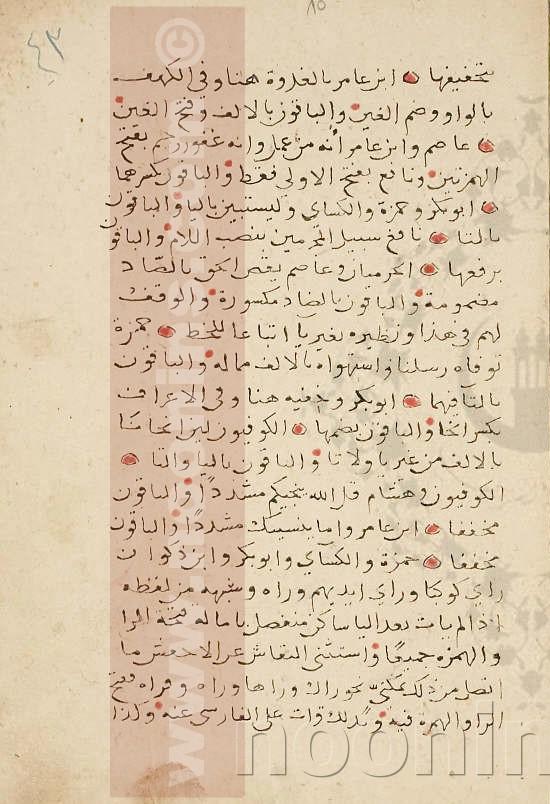 10
٤٣
بتخفيفها ابن عامر بالغدوة هنا وفي الكهف
بالواو وضم الغين والباقون بالالف وفتح الغين
عاصم وابن عامر أنه من عمل وانه غفور رحيم بفتح
الهمزتين ونافع بفتح الاولى فقط والباقون بكسرهما
ابوبكر وحمزة والكسائي وليستبين باليا والباقون
بالتا نافع سبيل المجرمين بنصب اللام والباقون
برفعها الحرميان وعاصم يقص الحق بالصاد
مضمومة والباقون بالضاد مكسورة والوقف
لهم في هذا ونظيره بغير يا اتباعا للخط حمزة
توفاه رسلنا واستهواه بالالف ممالة والباقون
بالتا فيهما ابوبكر وخفية هنا وفي الاعراف
بكسر الخا والباقون بضمها الكوفيون لئن انجانا
بالالف من غير يا ولا تا والباقون باليا والتا
الكوفيون وهشام قل الله ينجيكم مشددا والباقون
مخففا ابن عامر واما ينسينك مشددا والباقون
مخففا حمزة والكسائي وابوبكر وابن ذكوان
راي كوكبا وراي ايديهم وراه وشبهه من لفظه
اذا لم يات بعد اليا ساكن منفصل بامالة فتحة الرا
والهمزه جميعا واستثنى النقاش عن الاخفش ما
اتصل من ذلك بمكني نحو راك وراها وراه وقراه بفتح
الرا والهمزه فيه وبذلك قرات على الفارسي عنه وكذا
noonin